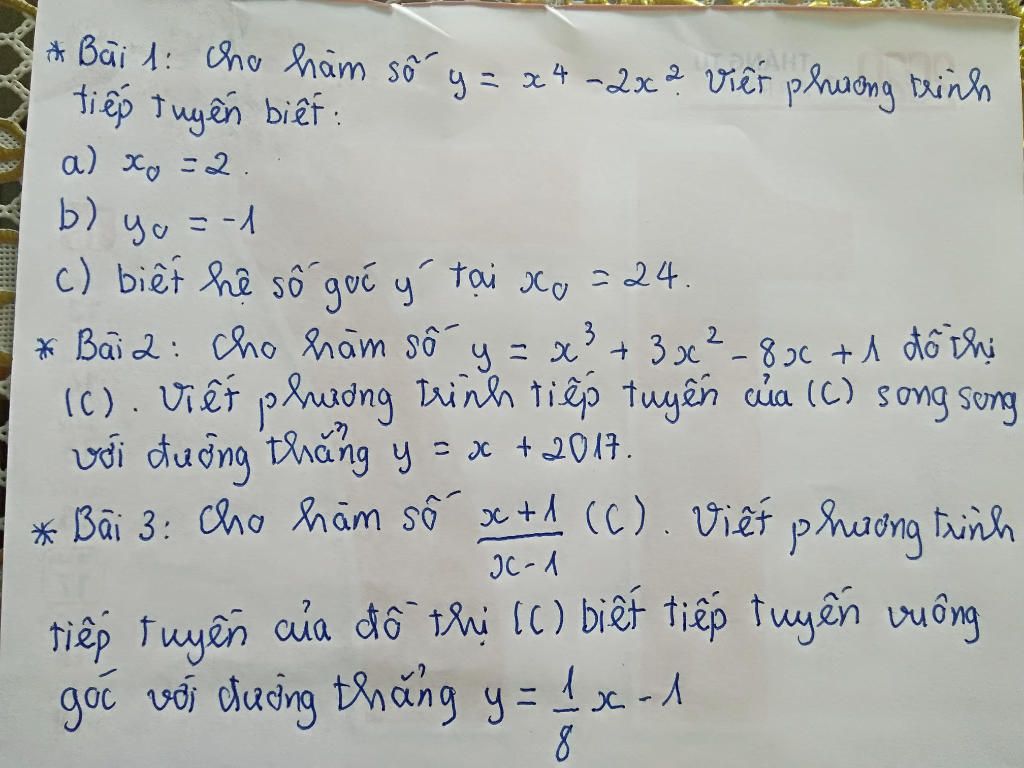 * Bài 1: Cho hàm số y = x⁴ - 2x². Viết phương trình
tiếp tuyến biết:
a) x₀ = 2.
b) y₀ = -1
c) biết hệ số góc y' tại x₀ = 24.
* Bài 2: Cho hàm số y = x³ + 3x² - 8x + 1 đồ thị
(C). Viết phương trình tiếp tuyến của (C) song song
với đường thẳng y = x + 2017.
* Bài 3: Cho hàm số (x+1)/(x-1) (C). Viết phương trình
tiếp tuyến của đồ thị (C) biết tiếp tuyến vuông
góc với đường thẳng y = 1/8 x - 1